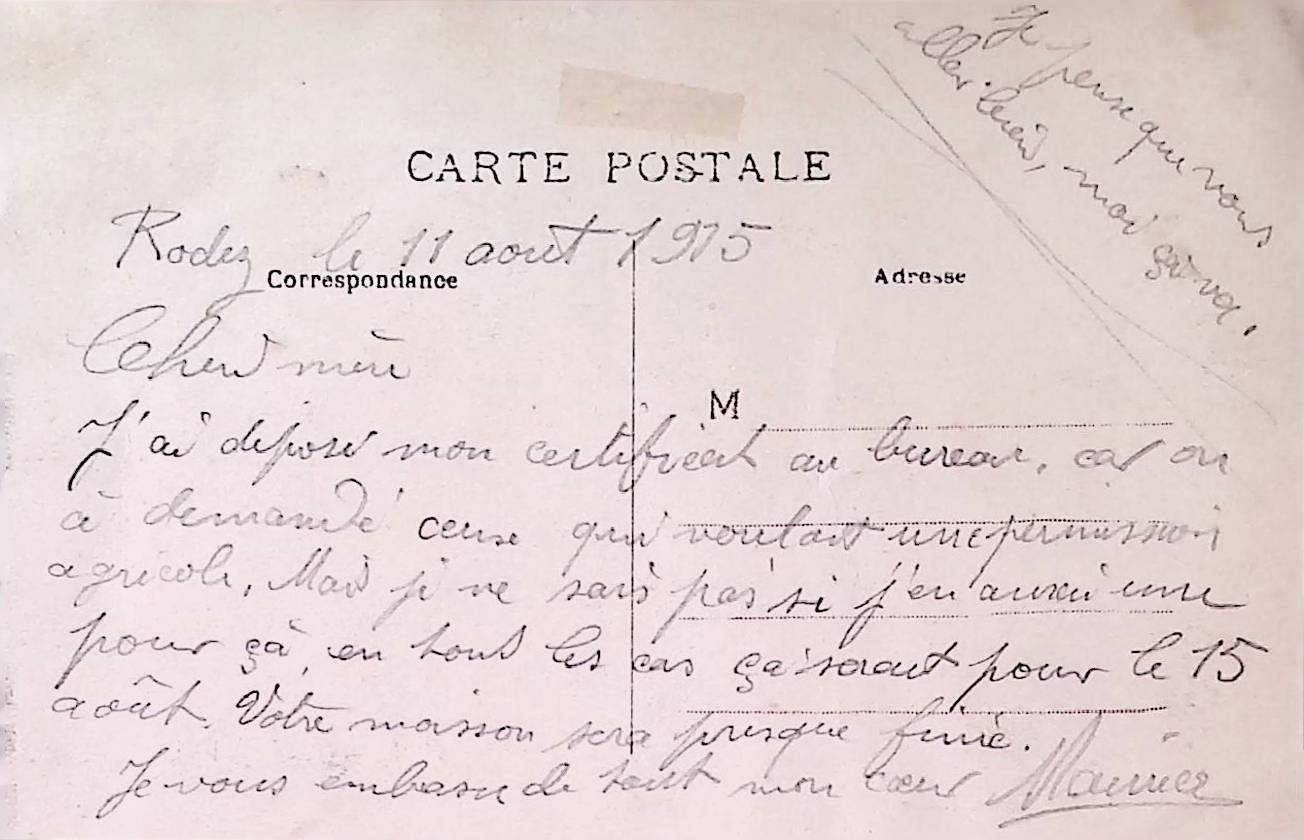 Je pense que vous
allez bien, moi ça va.
CARTE POSTALE
Rodez le 11 août 1915
Correspondance
Adresse
Cher mère
M
J'ai déposé mon certificat au bureau, car on
à demandé ceux qui voulait une permission
agricole. Mais je ne sais pas si j'en aurai une
pour çà, en tout les cas ça serait pour le 15
août. Votre maison sera presque finie.
Je vous embrasse de tout mon cœur